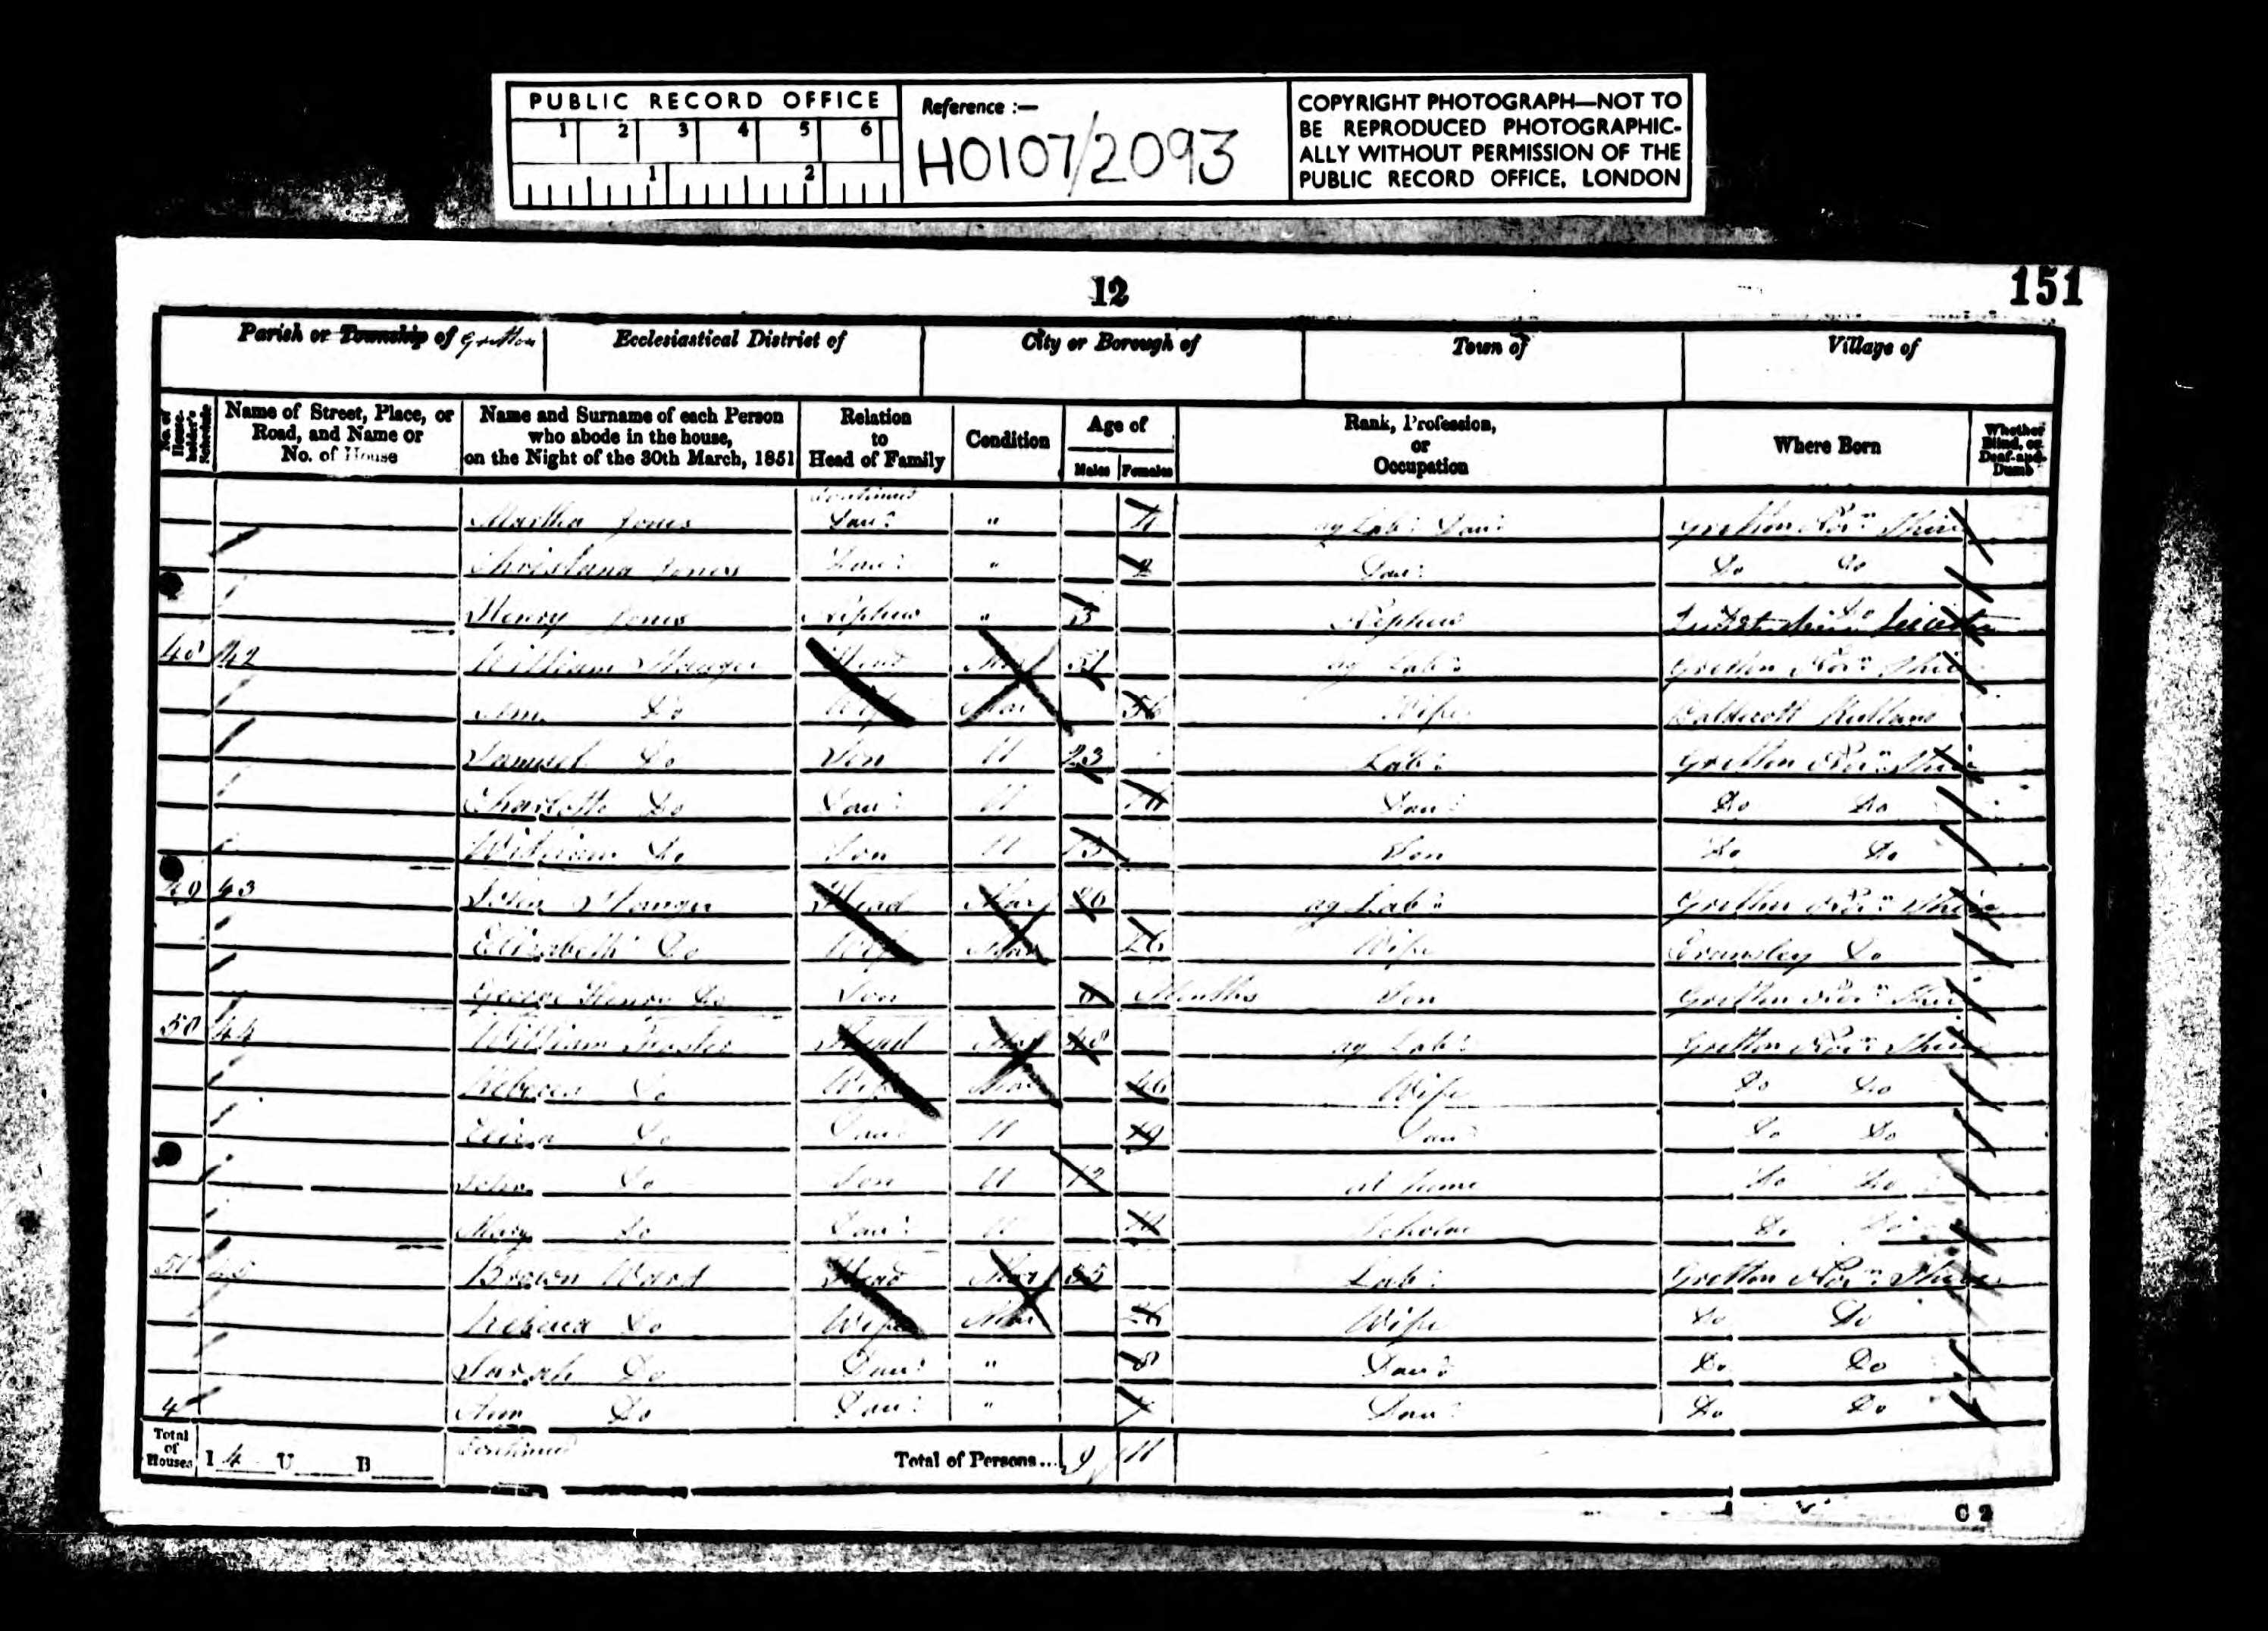 PUBLIC RECORD OFFICE
1 2 3 4 5 6
1 2
Reference :—
HO107/2093
COPYRIGHT PHOTOGRAPH—NOT TO
BE REPRODUCED PHOTOGRAPHIC-
ALLY WITHOUT PERMISSION OF THE
PUBLIC RECORD OFFICE, LONDON
12
151
Parish or Township of Gretton
Ecclesiastical District of
City or Borough of
Town of
Village of
No. of House-holder's Schedule
Name of Street, Place, or Road, and Name or No. of House
Name and Surname of each Person who abode in the house, on the Night of the 30th March, 1851
Relation to Head of Family
Condition
Age of
Males Females
Rank, Profession, or Occupation
Where Born
Whether Blind, or Deaf-and-Dumb
Continued
Martha Jones Daur " Ag Labr Daur Gretton Norn Shire
Christiana Jones Daur " 2 Daur Do Do
Henry Jones Nephew " 3 Nephew
48 42 William Manger Head Mar 51 Ag Labr Gretton Norn Shire
Ann Do Wife Mar 56 Wife Rutland
Samuel Do Son U 23 Labr Gretton Norn Shire
Charlotte Do Daur U Daur Do Do
William Do Son U 13 Son Do Do
49 43 John Manger Head Mar 26 Ag Labr Gretton Norn Shire
Elizabeth Do Wife Mar 26 Wife Do
George Henry Do Son Months Son Gretton Norn Shire
50 44 William Head Mar 48 Ag Labr Gretton Norn Shire
Rebecca Do Wife Mar 46 Wife Do Do
Eliza Do Daur U 19 Daur Do Do
John Do Son U 12 at home Do Do
Mary Do Daur U Scholar Do Do
51 45 Brown Ward Head Mar 35 Labr Gretton Norn Shire
Rebecca Do Wife Mar 26 Wife Do Do
Sarah Do Daur " 8 Daur Do Do
4 Ann Do Daur " Daur Do Do
Total of Houses I 4 U B
Continued
Total of Persons... 9 11
C 2